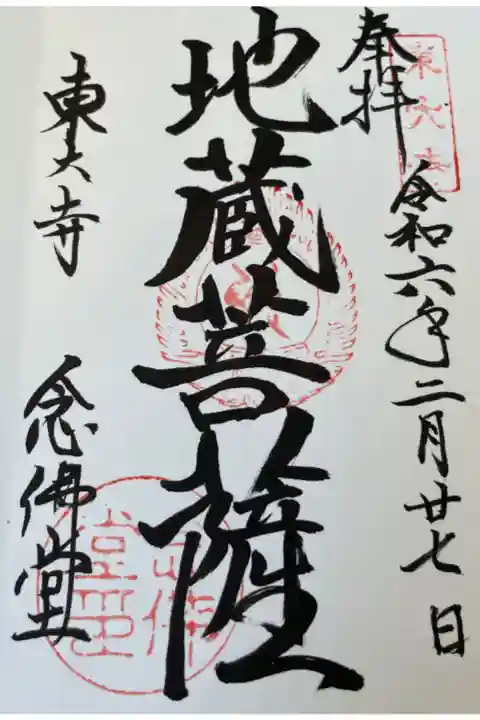 奉拝
東大寺
令和六年二月廿七日
地蔵菩薩
東大寺
念佛堂